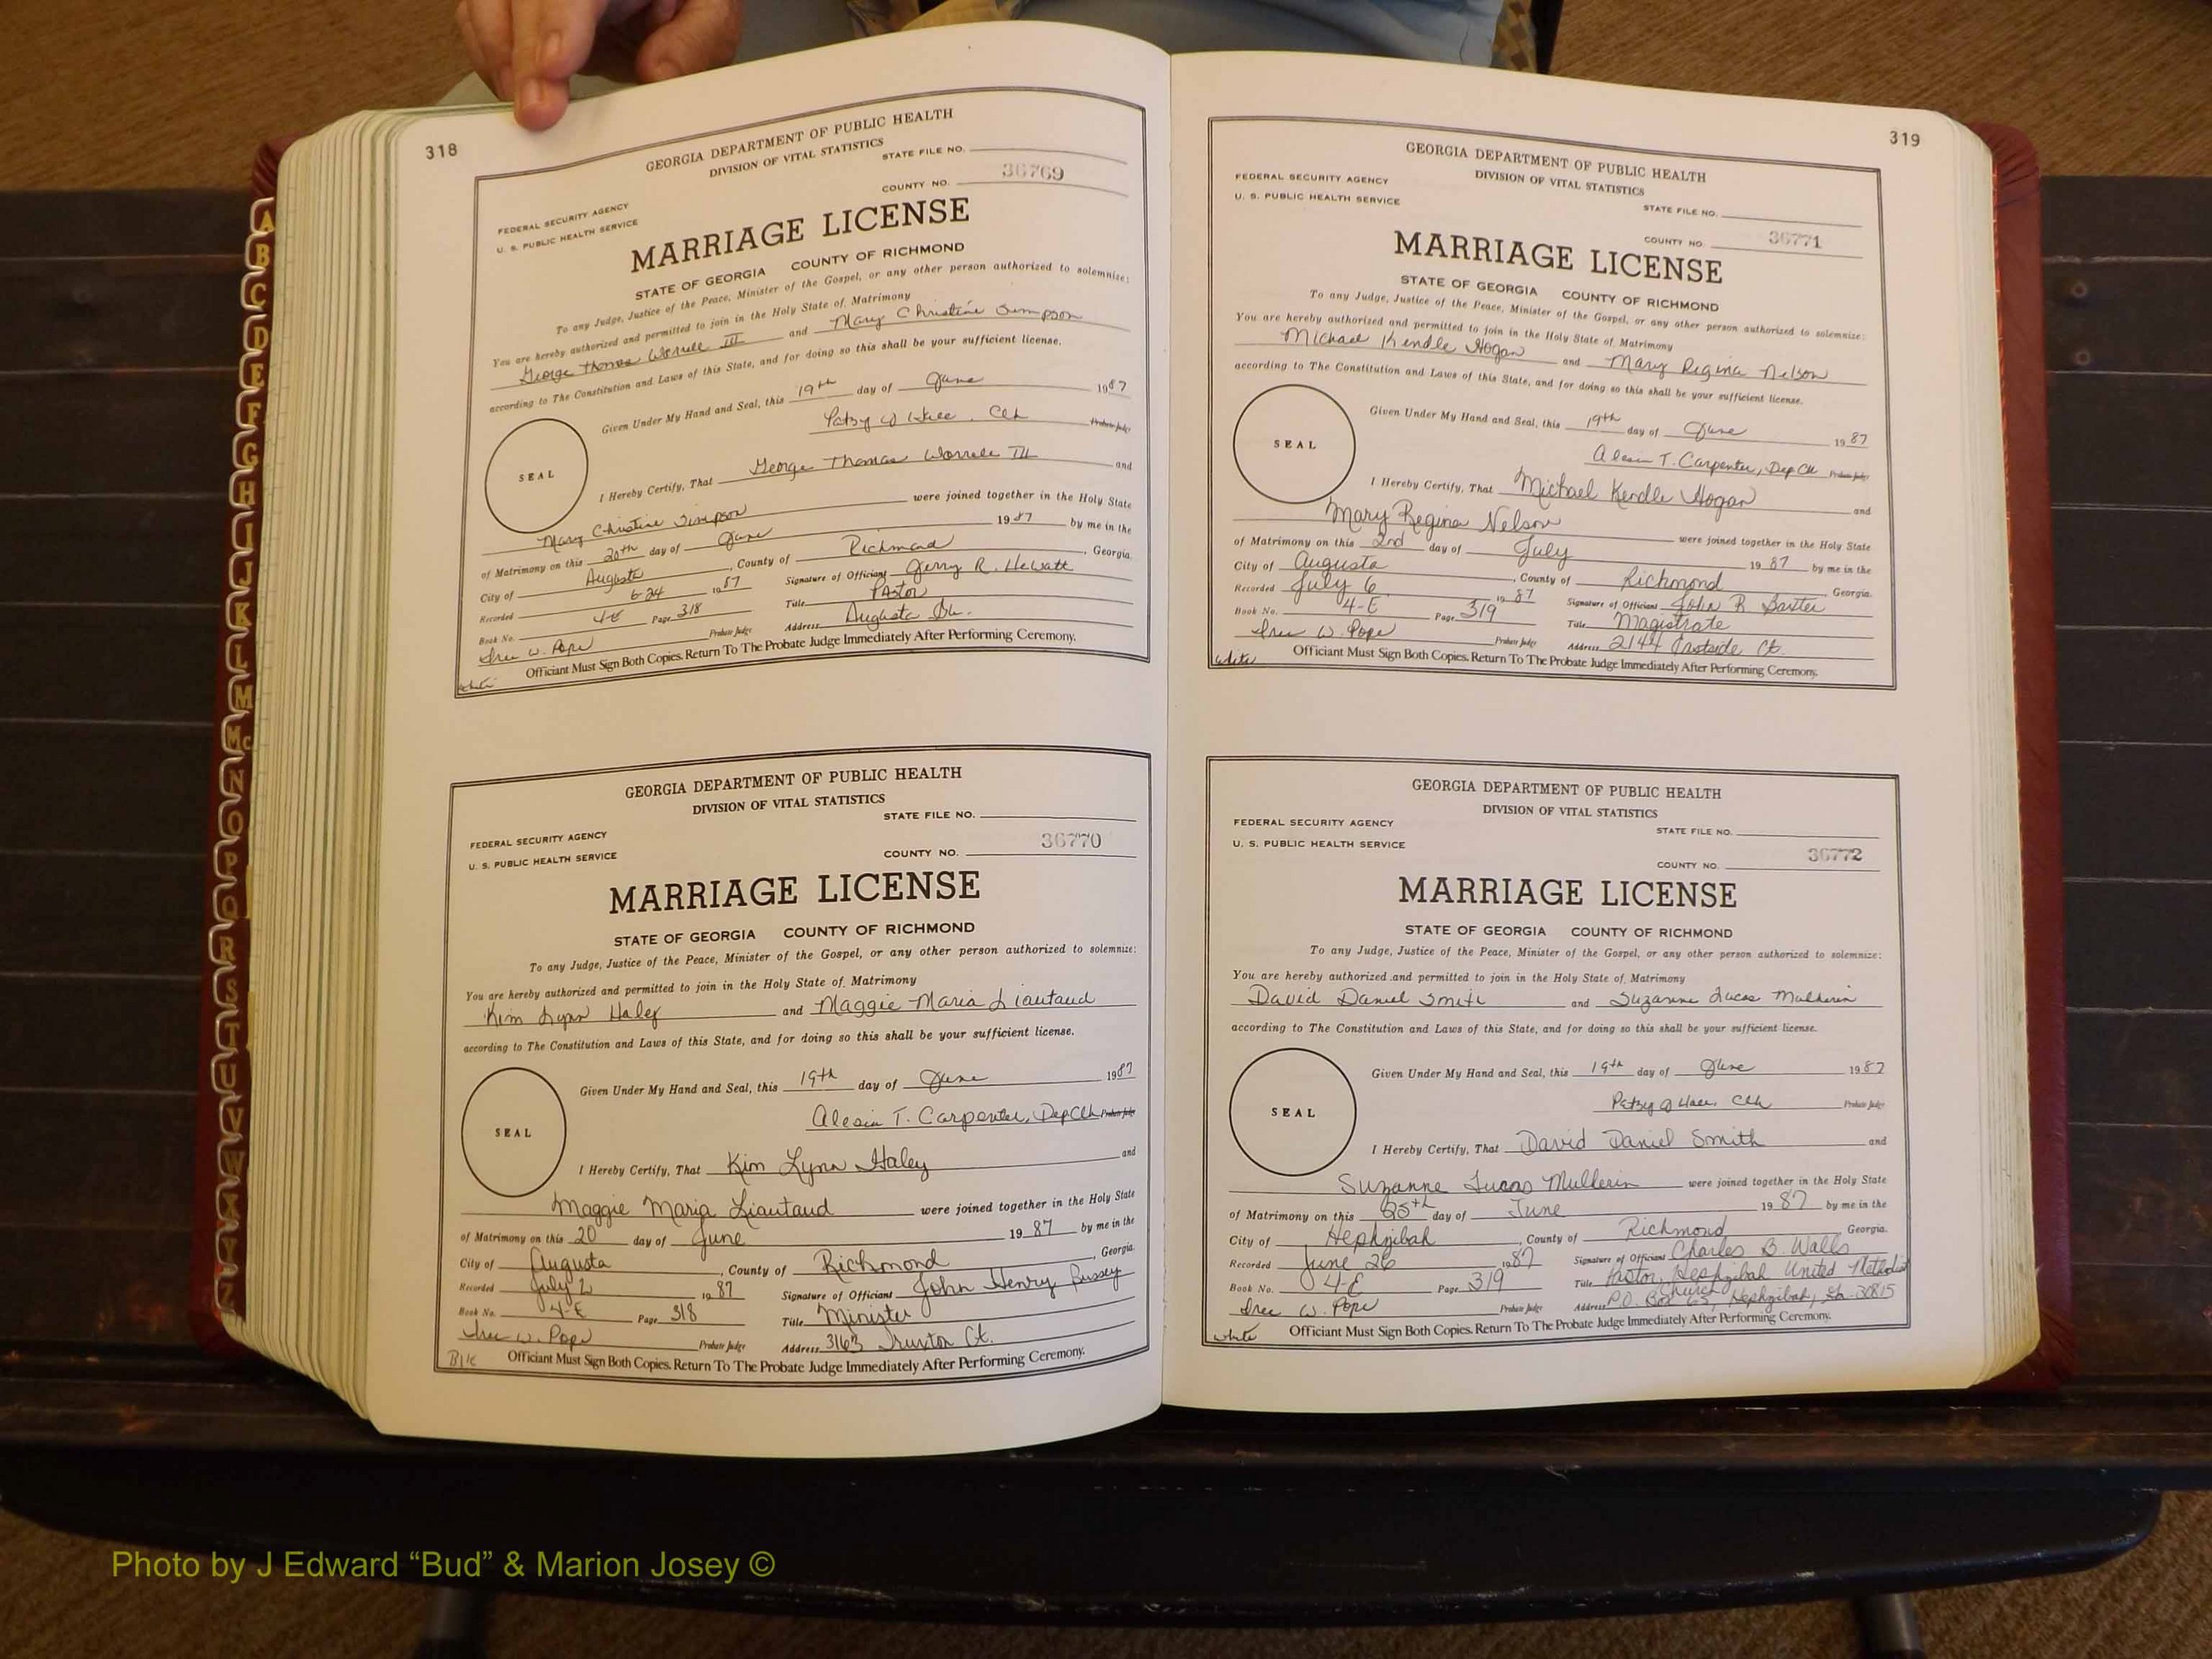 318
GEORGIA DEPARTMENT OF PUBLIC HEALTH
DIVISION OF VITAL STATISTICS
STATE FILE NO.
COUNTY NO. 36769
FEDERAL SECURITY AGENCY
U. S. PUBLIC HEALTH SERVICE
MARRIAGE LICENSE
STATE OF GEORGIA COUNTY OF RICHMOND
To any Judge, Justice of the Peace, Minister of the Gospel, or any other person authorized to solemnize:
You are hereby authorized and permitted to join in the Holy State of Matrimony
George Thomas Worrell III and Mary Christine Simpson
according to The Constitution and Laws of this State, and for doing so this shall be your sufficient license.
Given Under My Hand and Seal, this 19th day of June 1987
Patsy Clk Probate Judge
SEAL
I Hereby Certify, That George Thomas Worrell III and
Mary Christine Simpson were joined together in the Holy State
of Matrimony on this 20th day of June 1987 by me in the
City of Augusta, County of Richmond, Georgia.
Recorded 6-24 1987 Signature of Officiant Jerry R. Hewatt
Book No. 4-E Page 318 Title Pastor
W. Pope Probate Judge Address Augusta Ga.
white Officiant Must Sign Both Copies. Return To The Probate Judge Immediately After Performing Ceremony.
GEORGIA DEPARTMENT OF PUBLIC HEALTH
DIVISION OF VITAL STATISTICS
STATE FILE NO.
FEDERAL SECURITY AGENCY
U. S. PUBLIC HEALTH SERVICE
COUNTY NO. 36770
MARRIAGE LICENSE
STATE OF GEORGIA COUNTY OF RICHMOND
To any Judge, Justice of the Peace, Minister of the Gospel, or any other person authorized to solemnize:
You are hereby authorized and permitted to join in the Holy State of Matrimony
Kim Lynn Haley and Maggie Maria Liautaud
according to The Constitution and Laws of this State, and for doing so this shall be your sufficient license.
Given Under My Hand and Seal, this 19th day of June 1987
Alesia T. Carpenter, Dep Clk Probate Judge
SEAL
I Hereby Certify, That Kim Lynn Haley and
Maggie Maria Liautaud were joined together in the Holy State
of Matrimony on this 20 day of June 1987 by me in the
City of Augusta, County of Richmond, Georgia.
Recorded July 2 1987 Signature of Officiant John Henry Bussey
Book No. 4-E Page 318 Title Minister
W. Pope Probate Judge Address 3163 Truxton Ct.
Blk Officiant Must Sign Both Copies. Return To The Probate Judge Immediately After Performing Ceremony.
319
GEORGIA DEPARTMENT OF PUBLIC HEALTH
DIVISION OF VITAL STATISTICS
FEDERAL SECURITY AGENCY
U. S. PUBLIC HEALTH SERVICE
STATE FILE NO.
COUNTY NO. 36771
MARRIAGE LICENSE
STATE OF GEORGIA COUNTY OF RICHMOND
To any Judge, Justice of the Peace, Minister of the Gospel, or any other person authorized to solemnize:
You are hereby authorized and permitted to join in the Holy State of Matrimony
Michael Kendle Hogan and Mary Regina Nelson
according to The Constitution and Laws of this State, and for doing so this shall be your sufficient license.
Given Under My Hand and Seal, this 19th day of June 1987
Alesia T. Carpenter, Dep Clk Probate Judge
SEAL
I Hereby Certify, That Michael Kendle Hogan and
Mary Regina Nelson were joined together in the Holy State
of Matrimony on this 2nd day of July 1987 by me in the
City of Augusta, County of Richmond Georgia.
Recorded July 6 1987 Signature of Officiant John R. Baxter
Book No. 4-E Page 319 Title Magistrate
W. Pope Probate Judge Address 2144 Eastside Ct.
white Officiant Must Sign Both Copies. Return To The Probate Judge Immediately After Performing Ceremony.
GEORGIA DEPARTMENT OF PUBLIC HEALTH
DIVISION OF VITAL STATISTICS
FEDERAL SECURITY AGENCY
STATE FILE NO.
U. S. PUBLIC HEALTH SERVICE
COUNTY NO. 36772
MARRIAGE LICENSE
STATE OF GEORGIA COUNTY OF RICHMOND
To any Judge, Justice of the Peace, Minister of the Gospel, or any other person authorized to solemnize:
You are hereby authorized and permitted to join in the Holy State of Matrimony
David Daniel Smith and Suzanne Lucas Mulherin
according to The Constitution and Laws of this State, and for doing so this shall be your sufficient license.
Given Under My Hand and Seal, this 19th day of June 1987
Patsy Clk Probate Judge
SEAL
I Hereby Certify, That David Daniel Smith and
Suzanne Lucas Mulherin were joined together in the Holy State
of Matrimony on this 25th day of June 1987 by me in the
City of Hephzibah, County of Richmond Georgia.
Recorded June 26 1987 Signature of Officiant Charles B. Walls
Book No. 4-E Page 319 Title Pastor, Hephzibah United Methodist Church
W. Pope Probate Judge Address P.O. Box 65, Hephzibah, Ga. 30815
white Officiant Must Sign Both Copies. Return To The Probate Judge Immediately After Performing Ceremony.
A
B
C
D
E
F
G
H
I
J
K
L
M
Mc
N
O
P
Q
R
S
T
U
V
W
X
Y
Z
Photo by J Edward “Bud” & Marion Josey ©